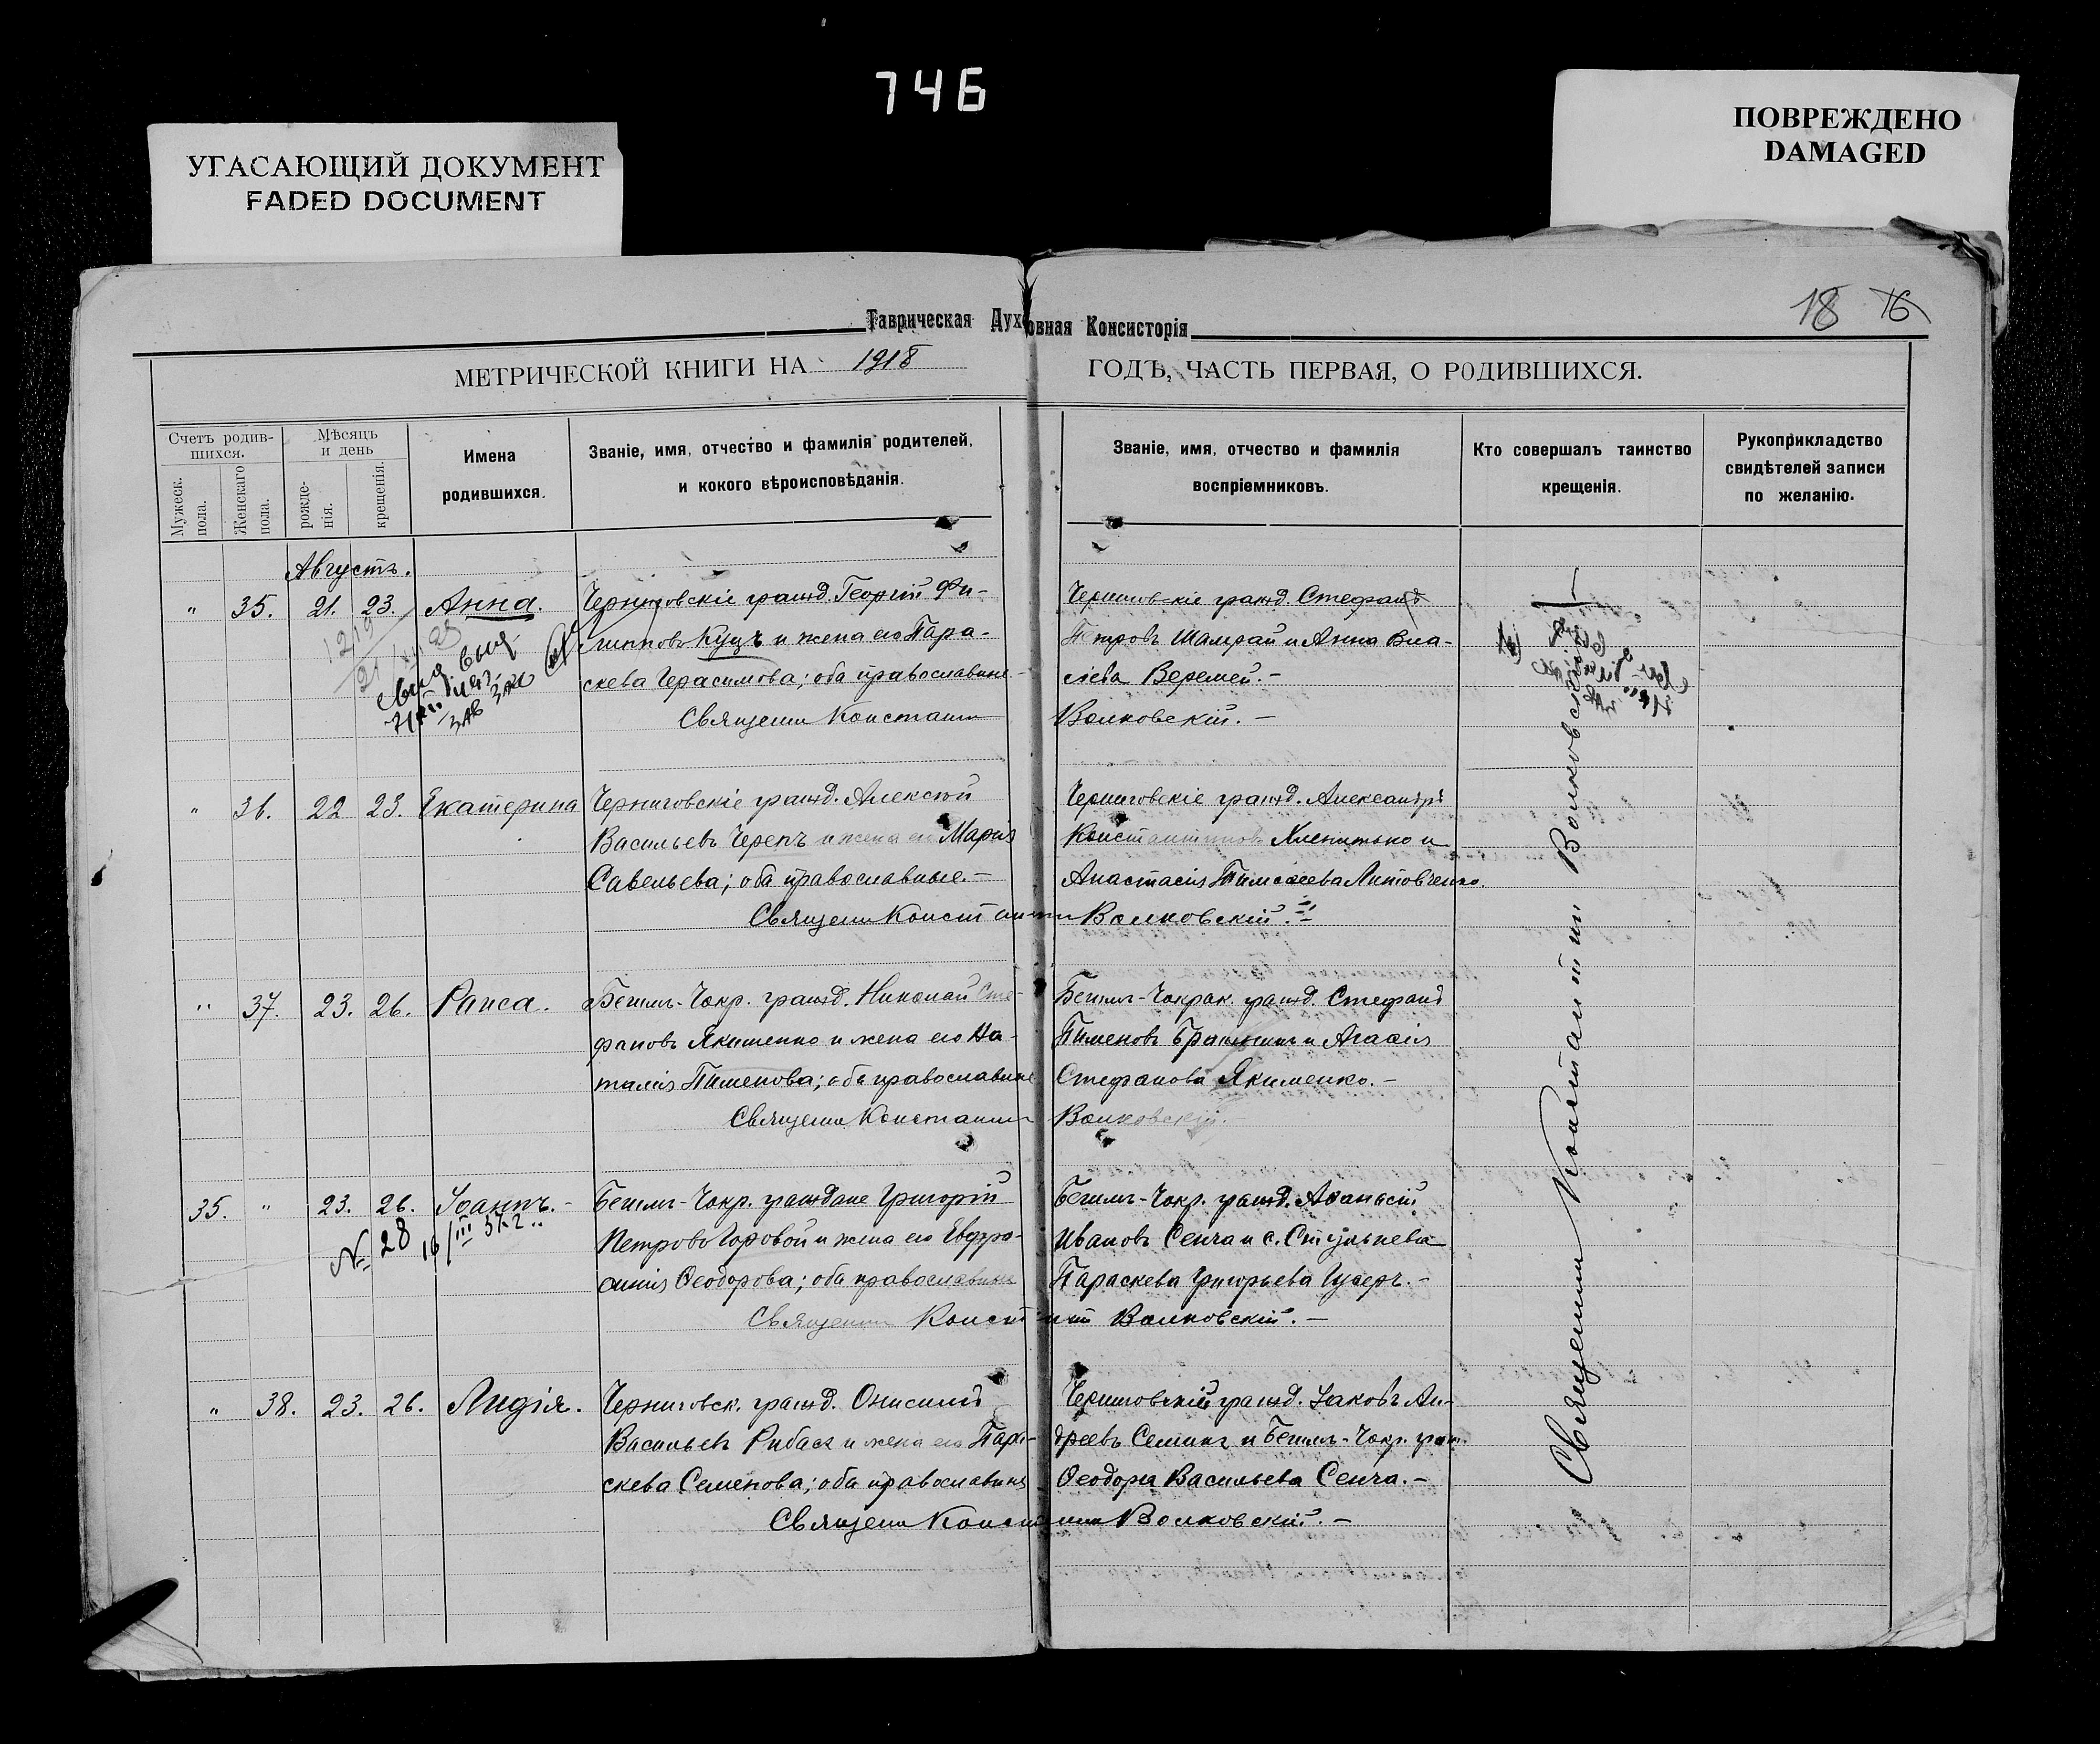 746
УГАСАЮЩИЙ ДОКУМЕНТ
FADED DOCUMENT
ПОВРЕЖДЕНО
DAMAGED
18 16
Таврическая Духовная Консисторія
МЕТРИЧЕСКОЙ КНИГИ НА 1918 ГОДЪ, ЧАСТЬ ПЕРВАЯ, О РОДИВШИХСЯ.
Счетъ родив-
шихся.
Мужеск.
пола.
Женскаго
пола.
Мѣсяцъ
и день
рожде-
нія.
крещенія.
Имена
родившихся.
Званіе, имя, отчество и фамилія родителей,
и кокого вѣроисповѣданія.
Званіе, имя, отчество и фамилія
воспріемниковъ.
Кто совершалъ таинство
крещенія.
Рукоприкладство
свидѣтелей записи
по желанію.
Августъ.
" 35. 21. 23. Анна.
Черниговскіе гражд. Георгій Фи-
липповъ Куцъ и жена его Пара-
скева Герасимова; оба православные
Черниговскіе гражд. Стефанъ
Петровъ Шамрай и Анна Вла-
сіева Веремей.-
Священн Константин Волковскій.-
" 36. 22 23. Екатерина
Черниговскіе гражд. Алексѣй
Васильевъ Черепъ и жена его Марія
Савельева; оба православные.-
Черниговскіе гражд. Александръ
Константиновъ Хленитько и
Анастасія Тимофеева Литовченко.
Священн Константин Волковскій.
" 37. 23. 26. Раиса.
Бешлъ-Чокр. гражд. Николай Сте-
фановъ Якименко и жена его На-
талія Пименова; оба православные
Бешлъ-Чокрак. гражд. Стефанъ
Пименовъ и Агафія
Стефанова Якименко.-
Священн Константин Волковскій.
35. " 23. 26. Іоаннъ.-
№ 28 16/III 37 г..
Бешлъ-Чокр. граждане Григорій
Петровъ Горовой и жена его Евфро-
синія Ѳеодорова; оба православные
Бешлъ-Чокр. гражд. Аѳанасій
Ивановъ Сенча и с. Стульнева
Параскева Григорьева Гусеръ.-
Священн Константин Волковскій.-
" 38. 23. 26. Лидія.
Черниговск. гражд. Онисимъ
Васильевъ Рибась и жена его Пара-
скева Семенова; оба православные
Черниговскій гражд. Іаковъ Ан-
дреевъ Семинъ и Бешлъ-Чокр. граж.
Ѳеодора Васильева Сенча.-
Священн Константин Волковскій.-
Священник Константин Волковскій